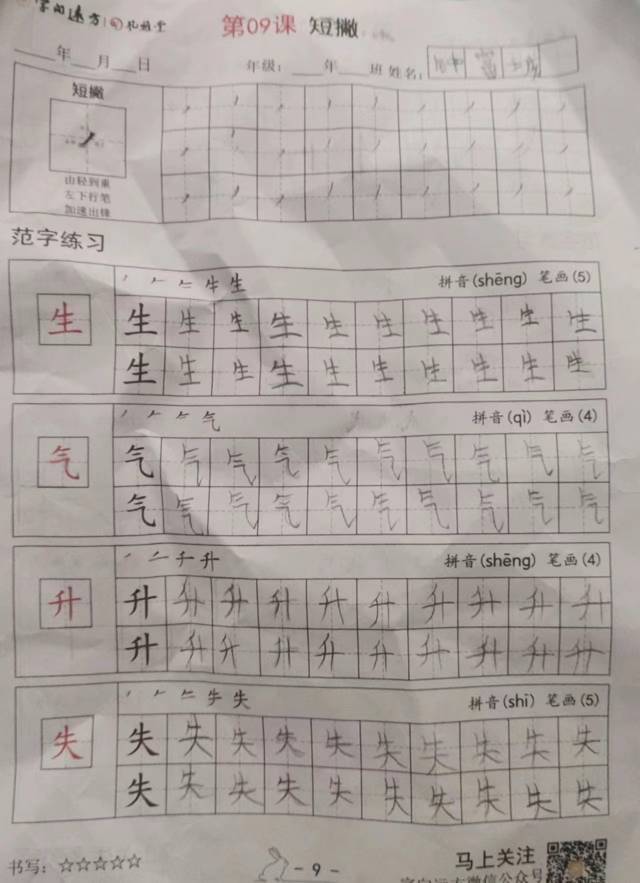 字向远方 孔祖堂
第09课 短撇
年 月 日 年级： 年 班 姓名：
短撇
由轻到重
左下行笔
加速出锋
范字练习
拼音(shēng) 笔画(5)
生 生 生 生 生 生 生 生 生 生 生
生 生 生 生 生 生 生 生 生 生
拼音(qì) 笔画(4)
气 气 气 气 气 气 气 气 气 气 气
气 气 气 气 气 气 气 气 气 气
拼音(shēng) 笔画(4)
升 升 升 升 升 升 升 升 升 升 升
升 升 升 升 升 升 升 升 升 升
拼音(shī) 笔画(5)
失 失 失 失 失 失 失 失 失 失 失
失 失 失 失 失 失 失 失 失 失
书写：☆☆☆☆☆
- 9 -
马上关注
字向远方微信公众号